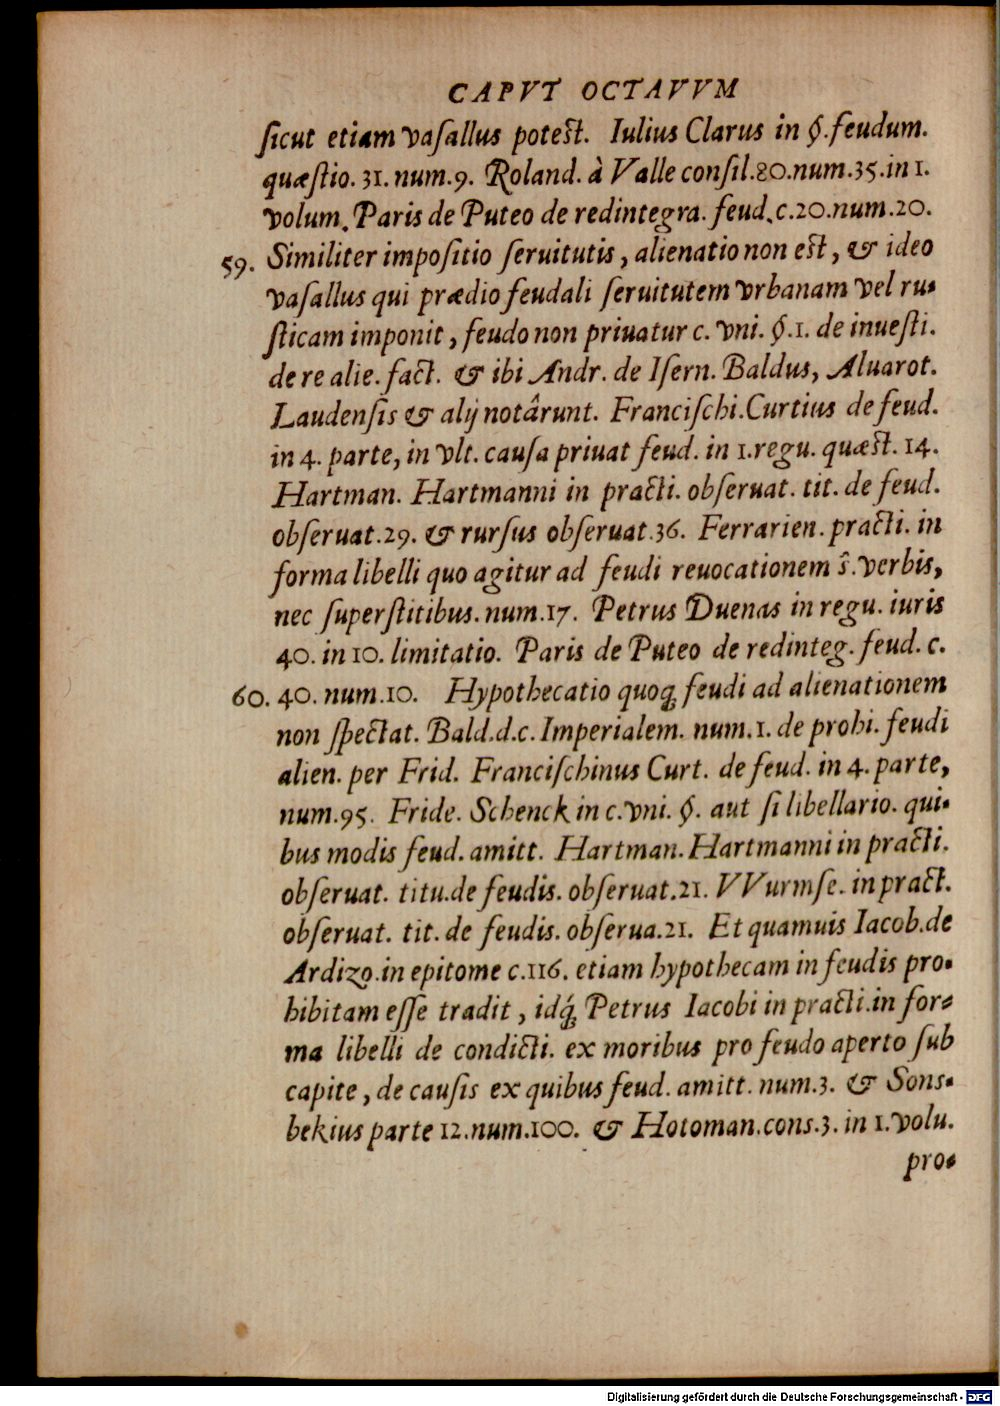 CAPVT OCTAVVM
ſicut etiam vaſallus poteſt. Iulius Clarus in §.feudum.
quæſtio. 31. num.9. Roland. à Valle conſil.80.num.35.in 1.
volum. Paris de Puteo de redintegra. feud.c.20.num.20.
59. Similiter impoſitio ſeruitutis, alienatio non eſt, & ideo
vaſallus qui prædio feudali ſeruitutem vrbanam vel ru-
ſticam imponit, feudo non priuatur c. vni. §.1. de inueſti.
de re alie. fact. & ibi Andr. de Iſern. Baldus, Aluarot.
Laudenſis & alij notârunt. Franciſchi.Curtius de feud.
in 4. parte, in vlt. cauſa priuat feud. in 1.regu. quæſt. 14.
Hartman. Hartmanni in practi. obſeruat. tit. de feud.
obſeruat.29. & rurſus obſeruat.36. Ferrarien. practi. in
forma libelli quo agitur ad feudi reuocationem ŝ.verbis,
nec ſuperſtitibus. num.17. Petrus Duenas in regu. iuris
40. in 10. limitatio. Paris de Puteo de redinteg. feud. c.
60. 40. num.10. Hypothecatio quoq; feudi ad alienationem
non ſpectat. Bald.d.c. Imperialem. num.1. de prohi. feudi
alien. per Frid. Franciſchinus Curt. de feud. in 4. parte,
num.95. Fride. Schenck in c.vni. §. aut ſi libellario. qui-
bus modis feud. amitt. Hartman. Hartmanni in practi.
obſeruat. titu.de feudis. obſeruat.21. VVurmſe. in pract.
obſeruat. tit. de feudis. obſerua.21. Et quamuis Iacob.de
Ardizo.in epitome c.116. etiam hypothecam in feudis pro-
hibitam eſſe tradit, idq́; Petrus Iacobi in practi.in for-
ma libelli de condicti. ex moribus pro feudo aperto ſub
capite, de cauſis ex quibus feud. amitt. num.3. & Sons-
bekius parte 12.num.100. & Hotoman.cons.3. in 1.volu.
pro-
Digitalisierung gefördert durch die Deutsche Forschungsgemeinschaft - DFG